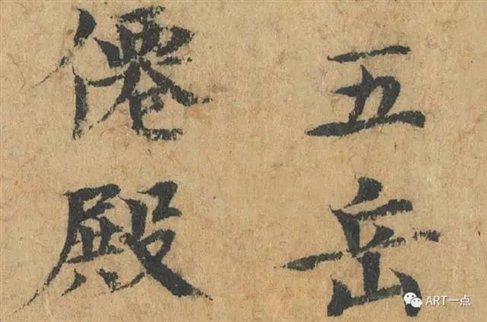 五岳
僊殿
ART一点